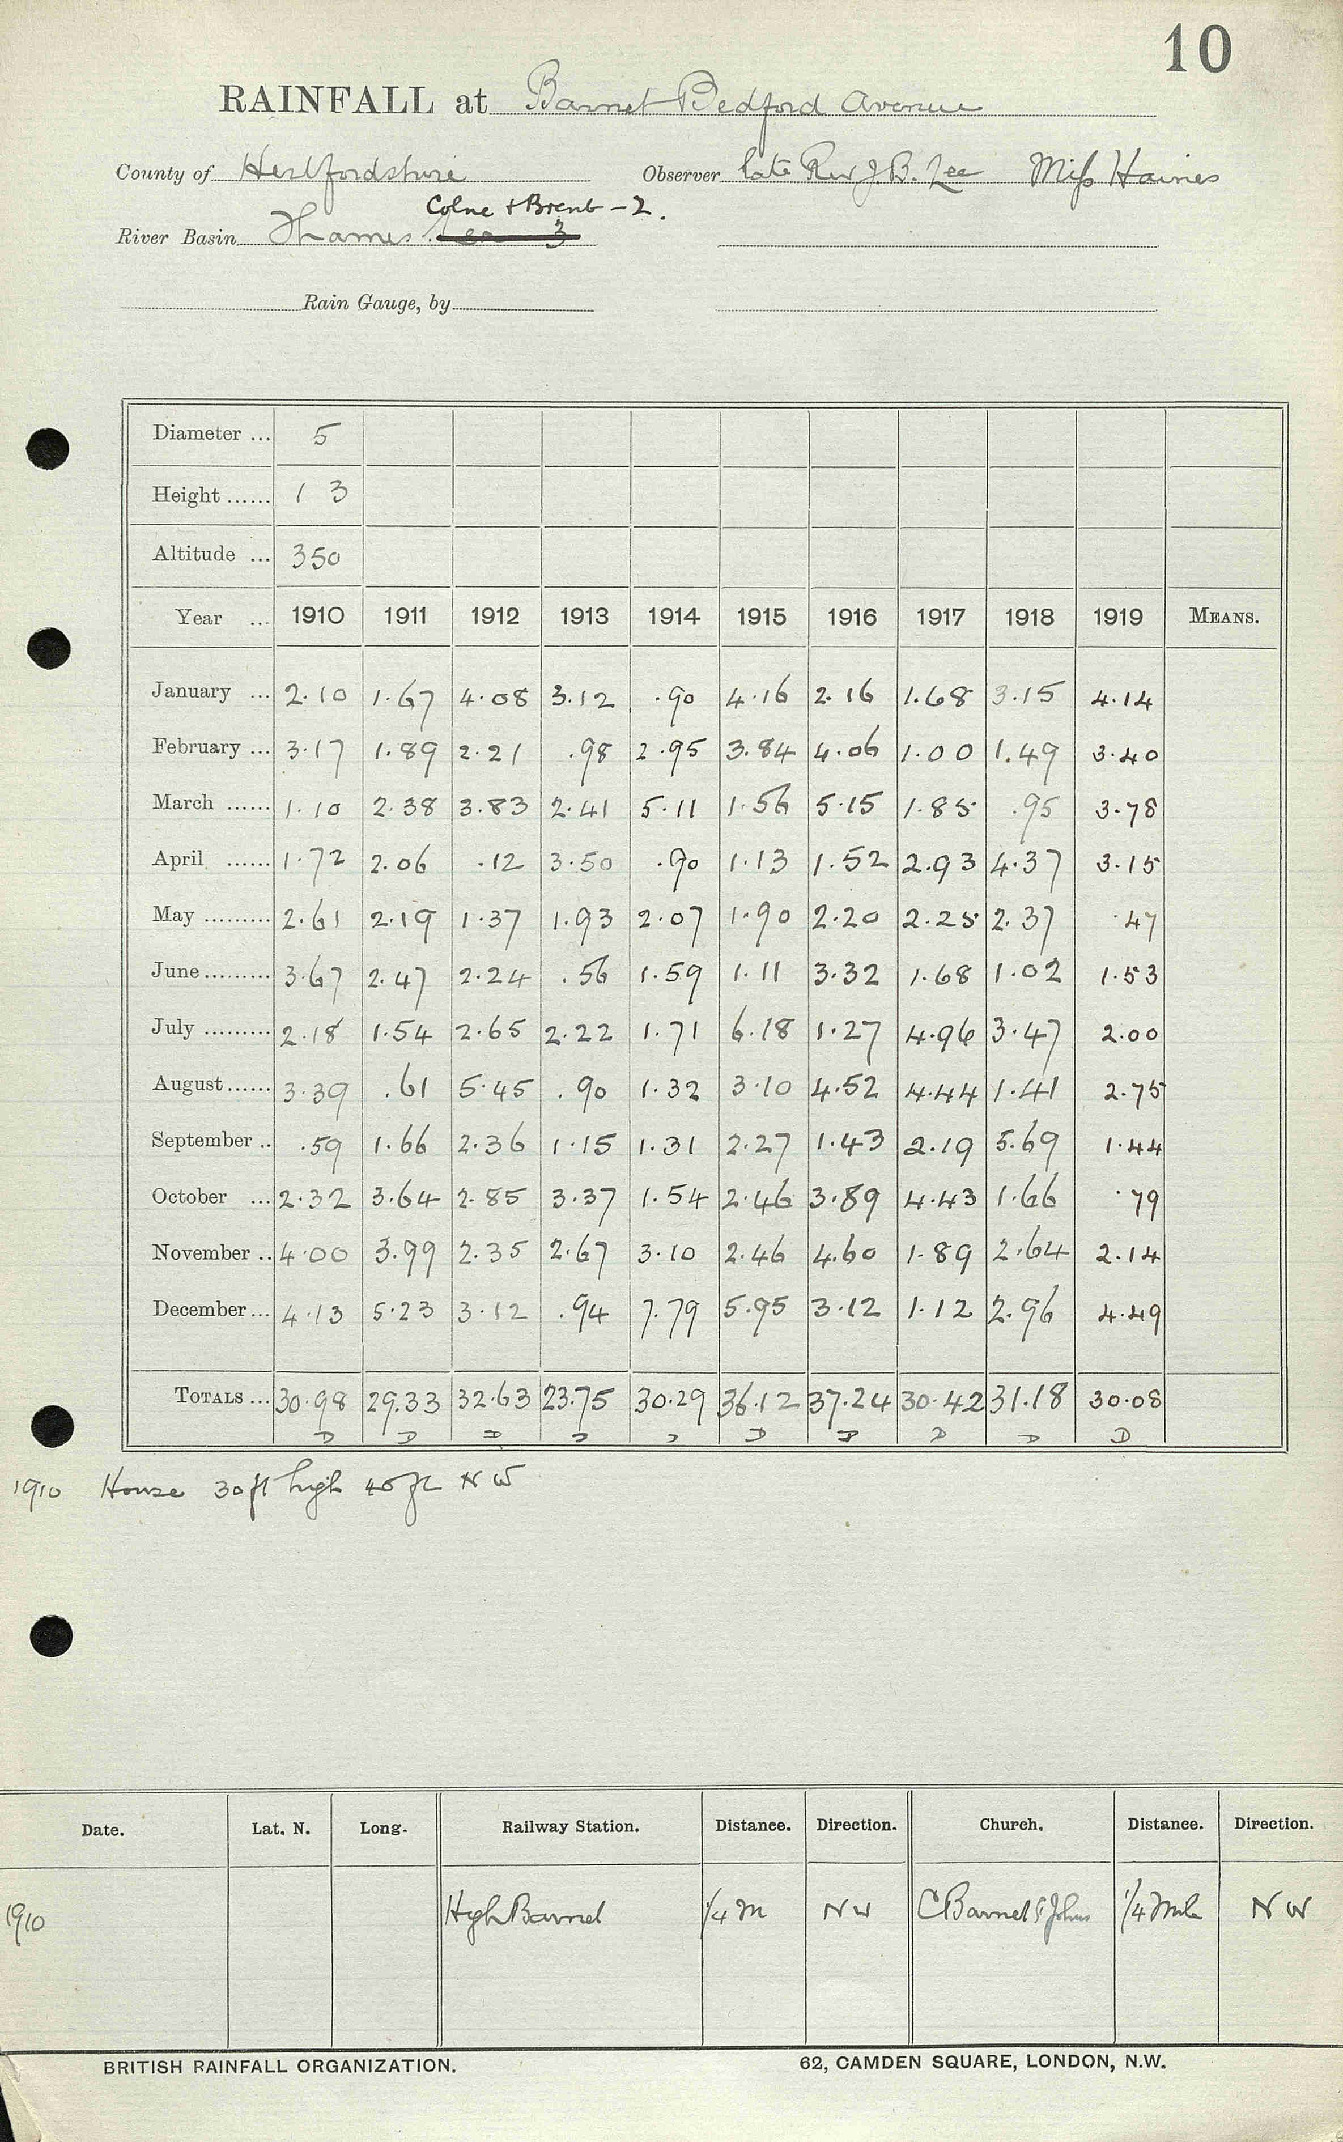 10
RAINFALL at Barnet Bedford Avenue
County of Hertfordshire Observer late Rev J.B. Lee Miss Haines
Colne & Brent - 2.
River Basin Thames Lea 3
Rain Gauge, by
Diameter ... 5
Height ...... 1 3
Altitude ... 350
Year ... 1910 1911 1912 1913 1914 1915 1916 1917 1918 1919 MEANS.
January ... 2.10 1.67 4.08 3.12 .90 4.16 2.16 1.68 3.15 4.14
February ... 3.17 1.89 2.21 .98 2.95 3.84 4.06 1.00 1.49 3.40
March ...... 1.10 2.38 3.83 2.41 5.11 1.56 5.15 1.85 .95 3.78
April ...... 1.72 2.06 .12 3.50 .90 1.13 1.52 2.93 4.37 3.15
May ......... 2.61 2.19 1.37 1.93 2.07 1.90 2.20 2.25 2.37 .47
June ......... 3.67 2.47 2.24 .56 1.59 1.11 3.32 1.68 1.02 1.53
July ......... 2.18 1.54 2.65 2.22 1.71 6.18 1.27 4.96 3.47 2.00
August ...... 3.39 .61 5.45 .90 1.32 3.10 4.52 4.44 1.41 2.75
September .. .59 1.66 2.36 1.15 1.31 2.27 1.43 2.19 5.69 1.44
October ... 2.32 3.64 2.85 3.37 1.54 2.46 3.89 4.43 1.66 .79
November .. 4.00 3.99 2.35 2.67 3.10 2.46 4.60 1.89 2.64 2.14
December ... 4.13 5.23 3.12 .94 7.79 5.95 3.12 1.12 2.96 4.49
TOTALS ... 30.98 29.33 32.63 23.75 30.29 36.12 37.24 30.42 31.18 30.08
D D D D D D D D D D
1910 House 30 ft high 45 ft N W
Date. Lat. N. Long. Railway Station. Distance. Direction. Church. Distance. Direction.
1910 High Barnet 1/4 M NW C Barnet St Johns 1/4 Mile NW
BRITISH RAINFALL ORGANIZATION. 62, CAMDEN SQUARE, LONDON, N.W.